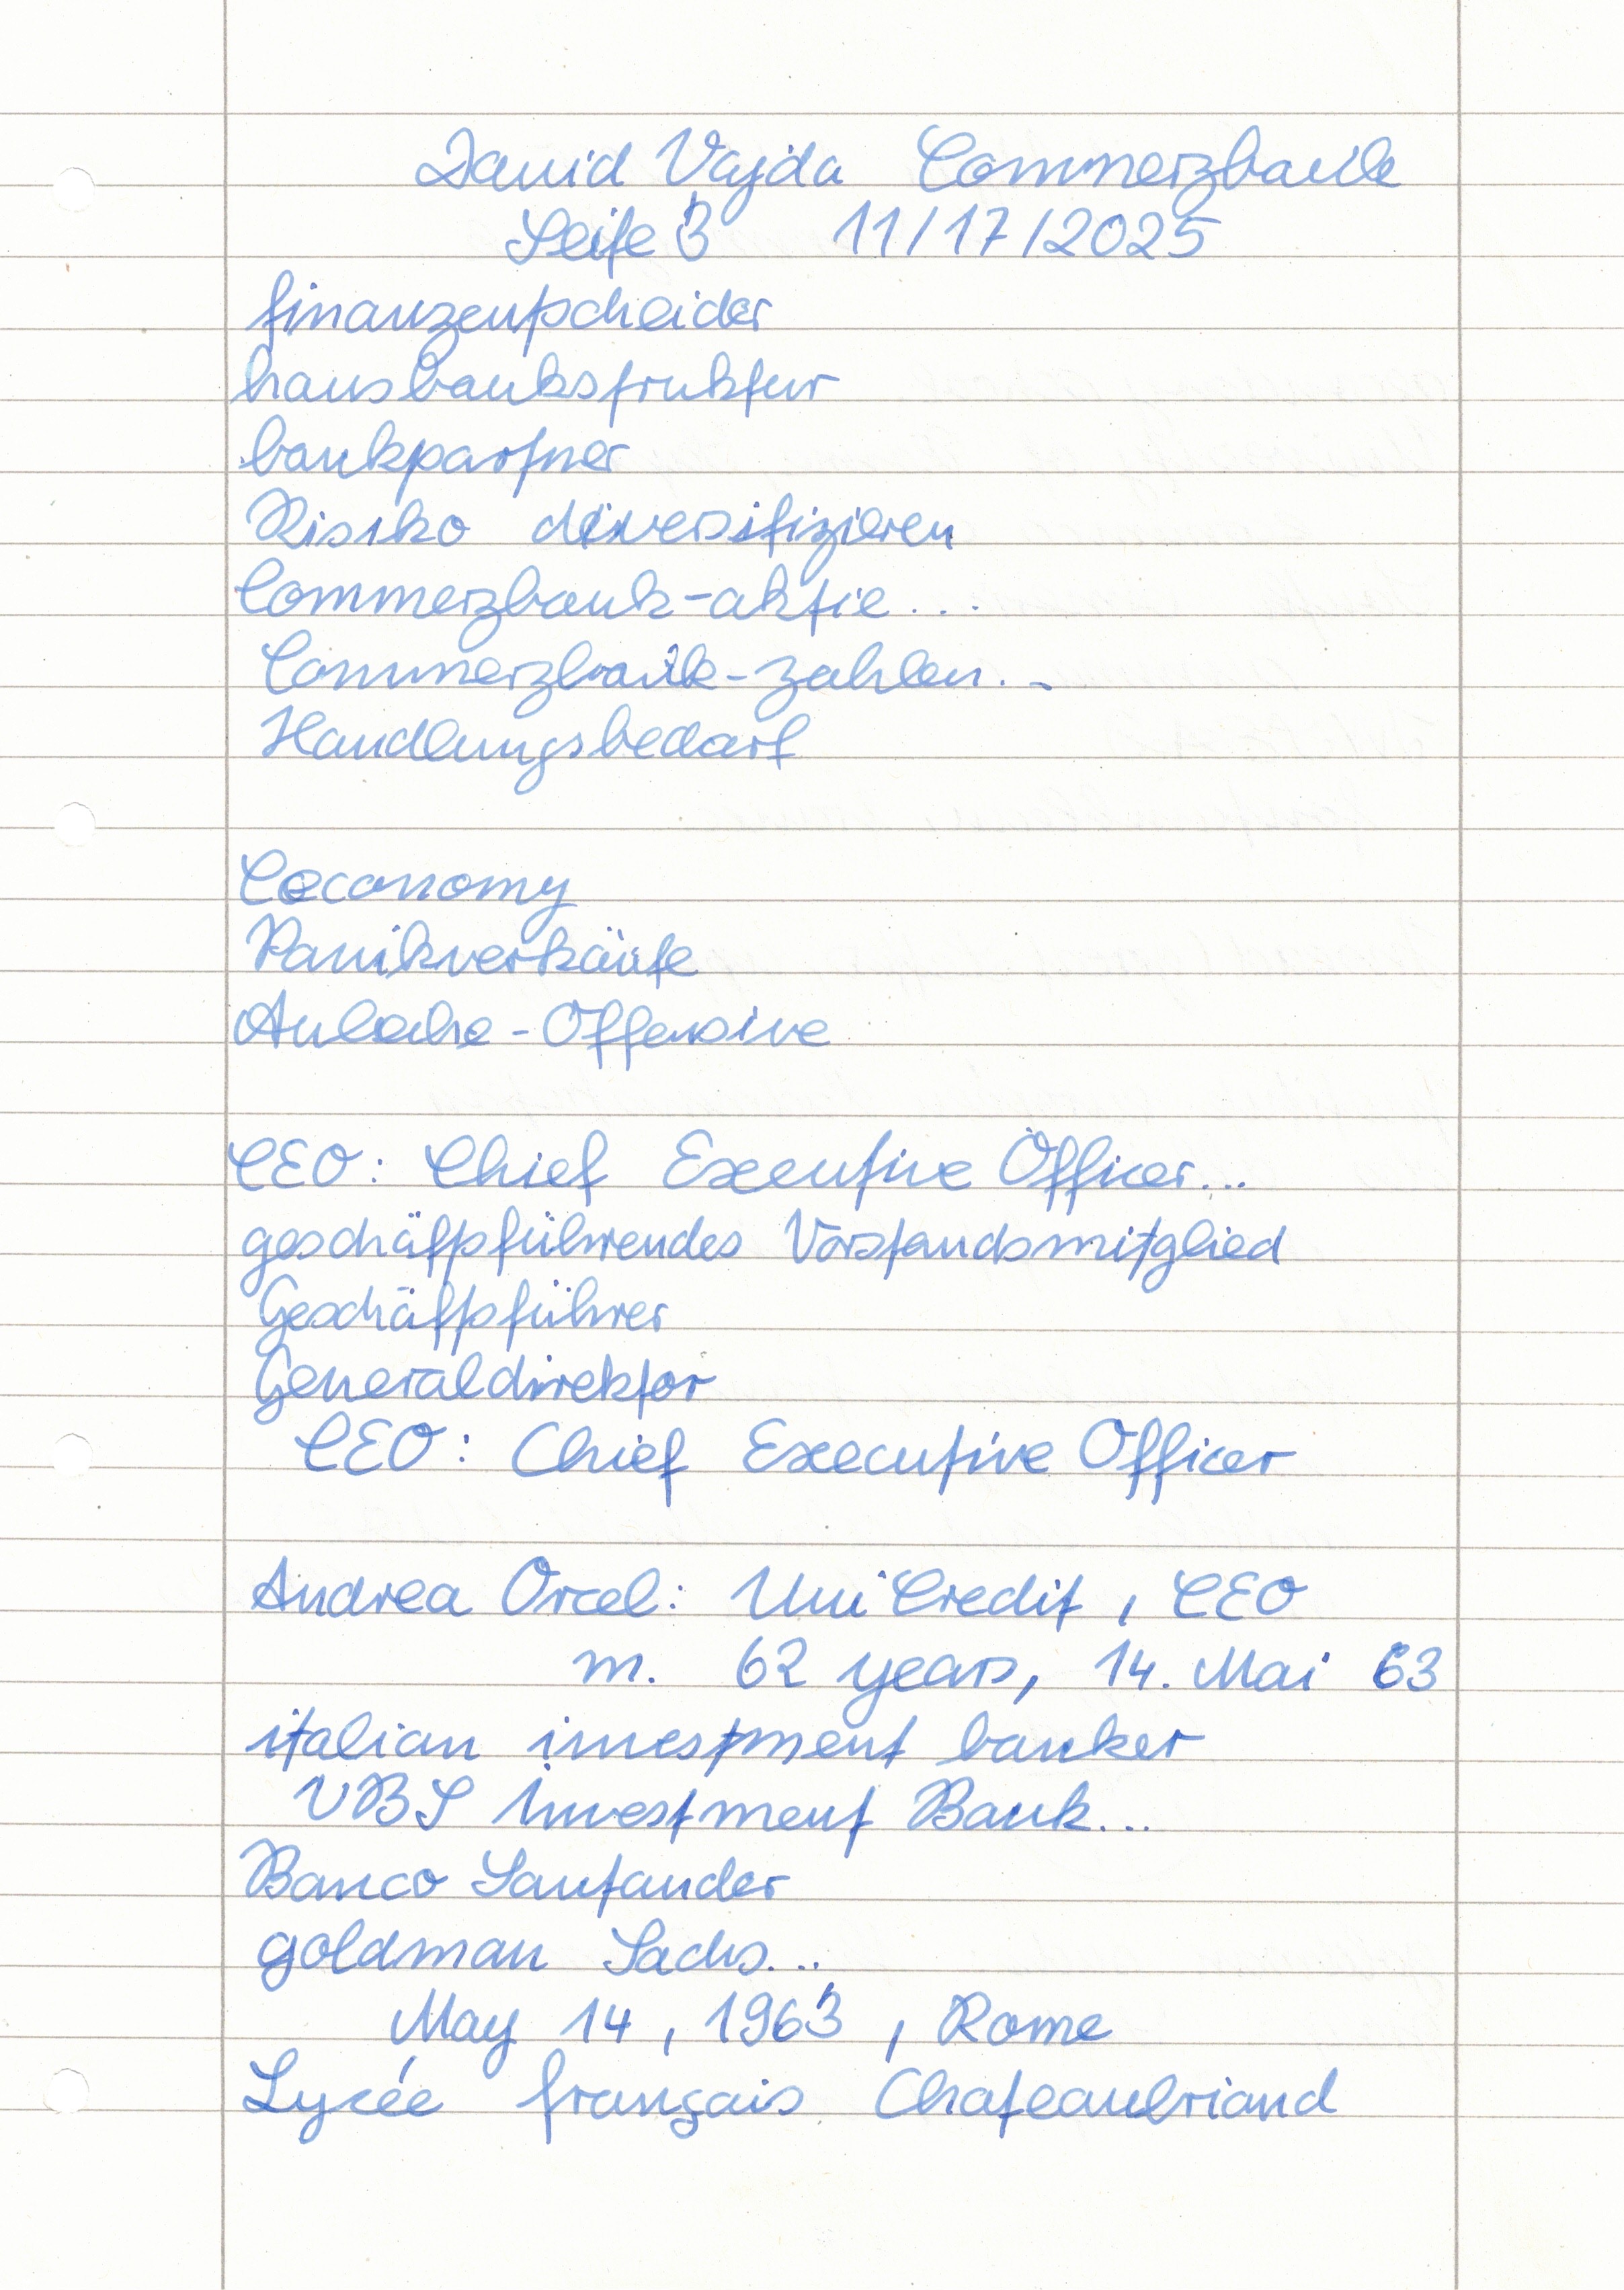 David Vajda Commerzbank
Seite 3 11/17/2025
finanzentscheider
hausbankstruktur
bankpartner
Risiko diversifizieren
Commerzbank-aktie...
Commerzbank-zahlen..
Handlungsbedarf
Ceconomy
Panikverkäufe
Anleihe-Offensive
CEO: Chief Executive Officer...
geschäftsführendes Vorstandsmitglied
Geschäftsführer
Generaldirektor
CEO: Chief Executive Officer
Andrea Orcel: UniCredit, CEO
m. 62 years, 14. Mai 63
italian investment banker
UBS Investment Bank...
Banco Santander
goldman Sachs...
May 14, 1963, Rome
Lycée français Chateaubriand